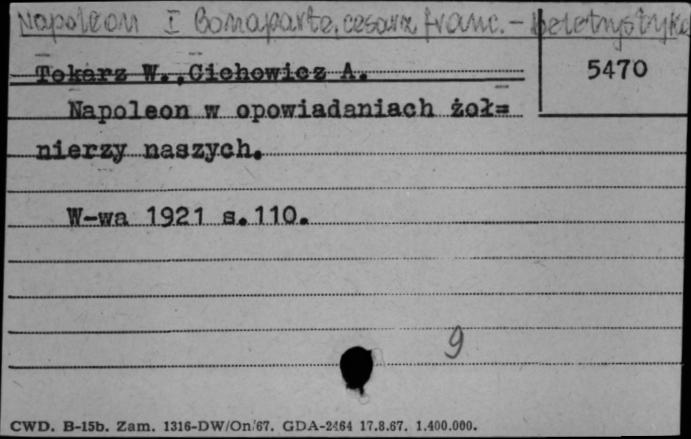 Napoleon I Bonaparte, cesarz franc. - beletrystyka
Tokarz W., Cichowicz A.
5470
Napoleon w opowiadaniach żoł=
nierzy naszych.
W-wa 1921 s.110.
9
CWD. B-15b. Zam. 1316-DW/On/67. GDA-2464 17.8.67. 1.400.000.